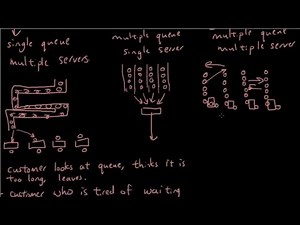 single queue
multiple servers
multiple queue
single server
multiple queue
multiple server
customer looks at queue, thinks it is
too long, leaves.
customer who is tired of waiting